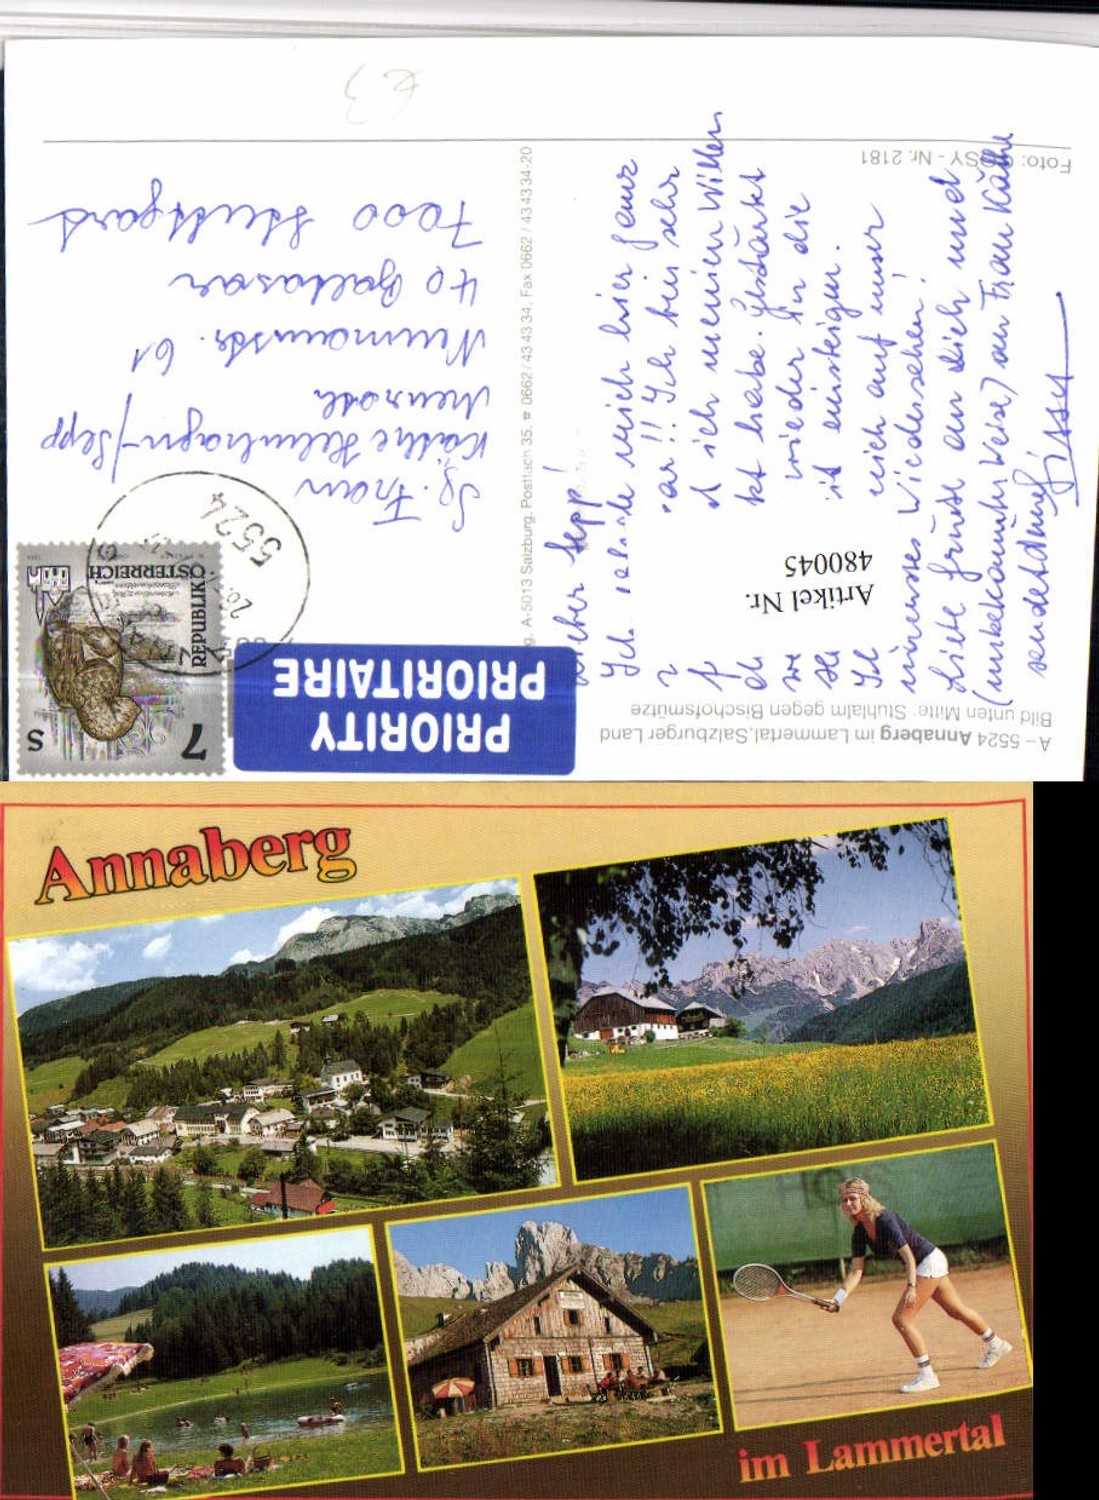 €3
Foto: COSY - Nr. 2181
7000 Stuttgart
40 Baltasar
Neumannstr. 61
Käthe Helmhagen/Sepp
Sg. Frau
g. A-5013 Salzburg, Postfach 35, ☎ 0662 / 43 43 34, Fax 0662 / 43 43 34-20
Lieber Sepp!
Ich mich hier ganz
ar!! Ich bin sehr
ich meinen Willen
kt habe. Gestärkt
wieder in die
einsteigen.
Ich mich auf unser
Wiedersehen!
Liebe Grüße an Dich und
(unbekannter Weise) an Frau Käthe
sendet
Artikel Nr.
480045
5524
7 S
REPUBLIK
ÖSTERREICH
PRIORITY
PRIORITAIRE
A – 5524 Annaberg im Lammertal, Salzburger Land
Bild unten Mitte: Stuhlalm gegen Bischofsmütze
Annaberg
im Lammertal